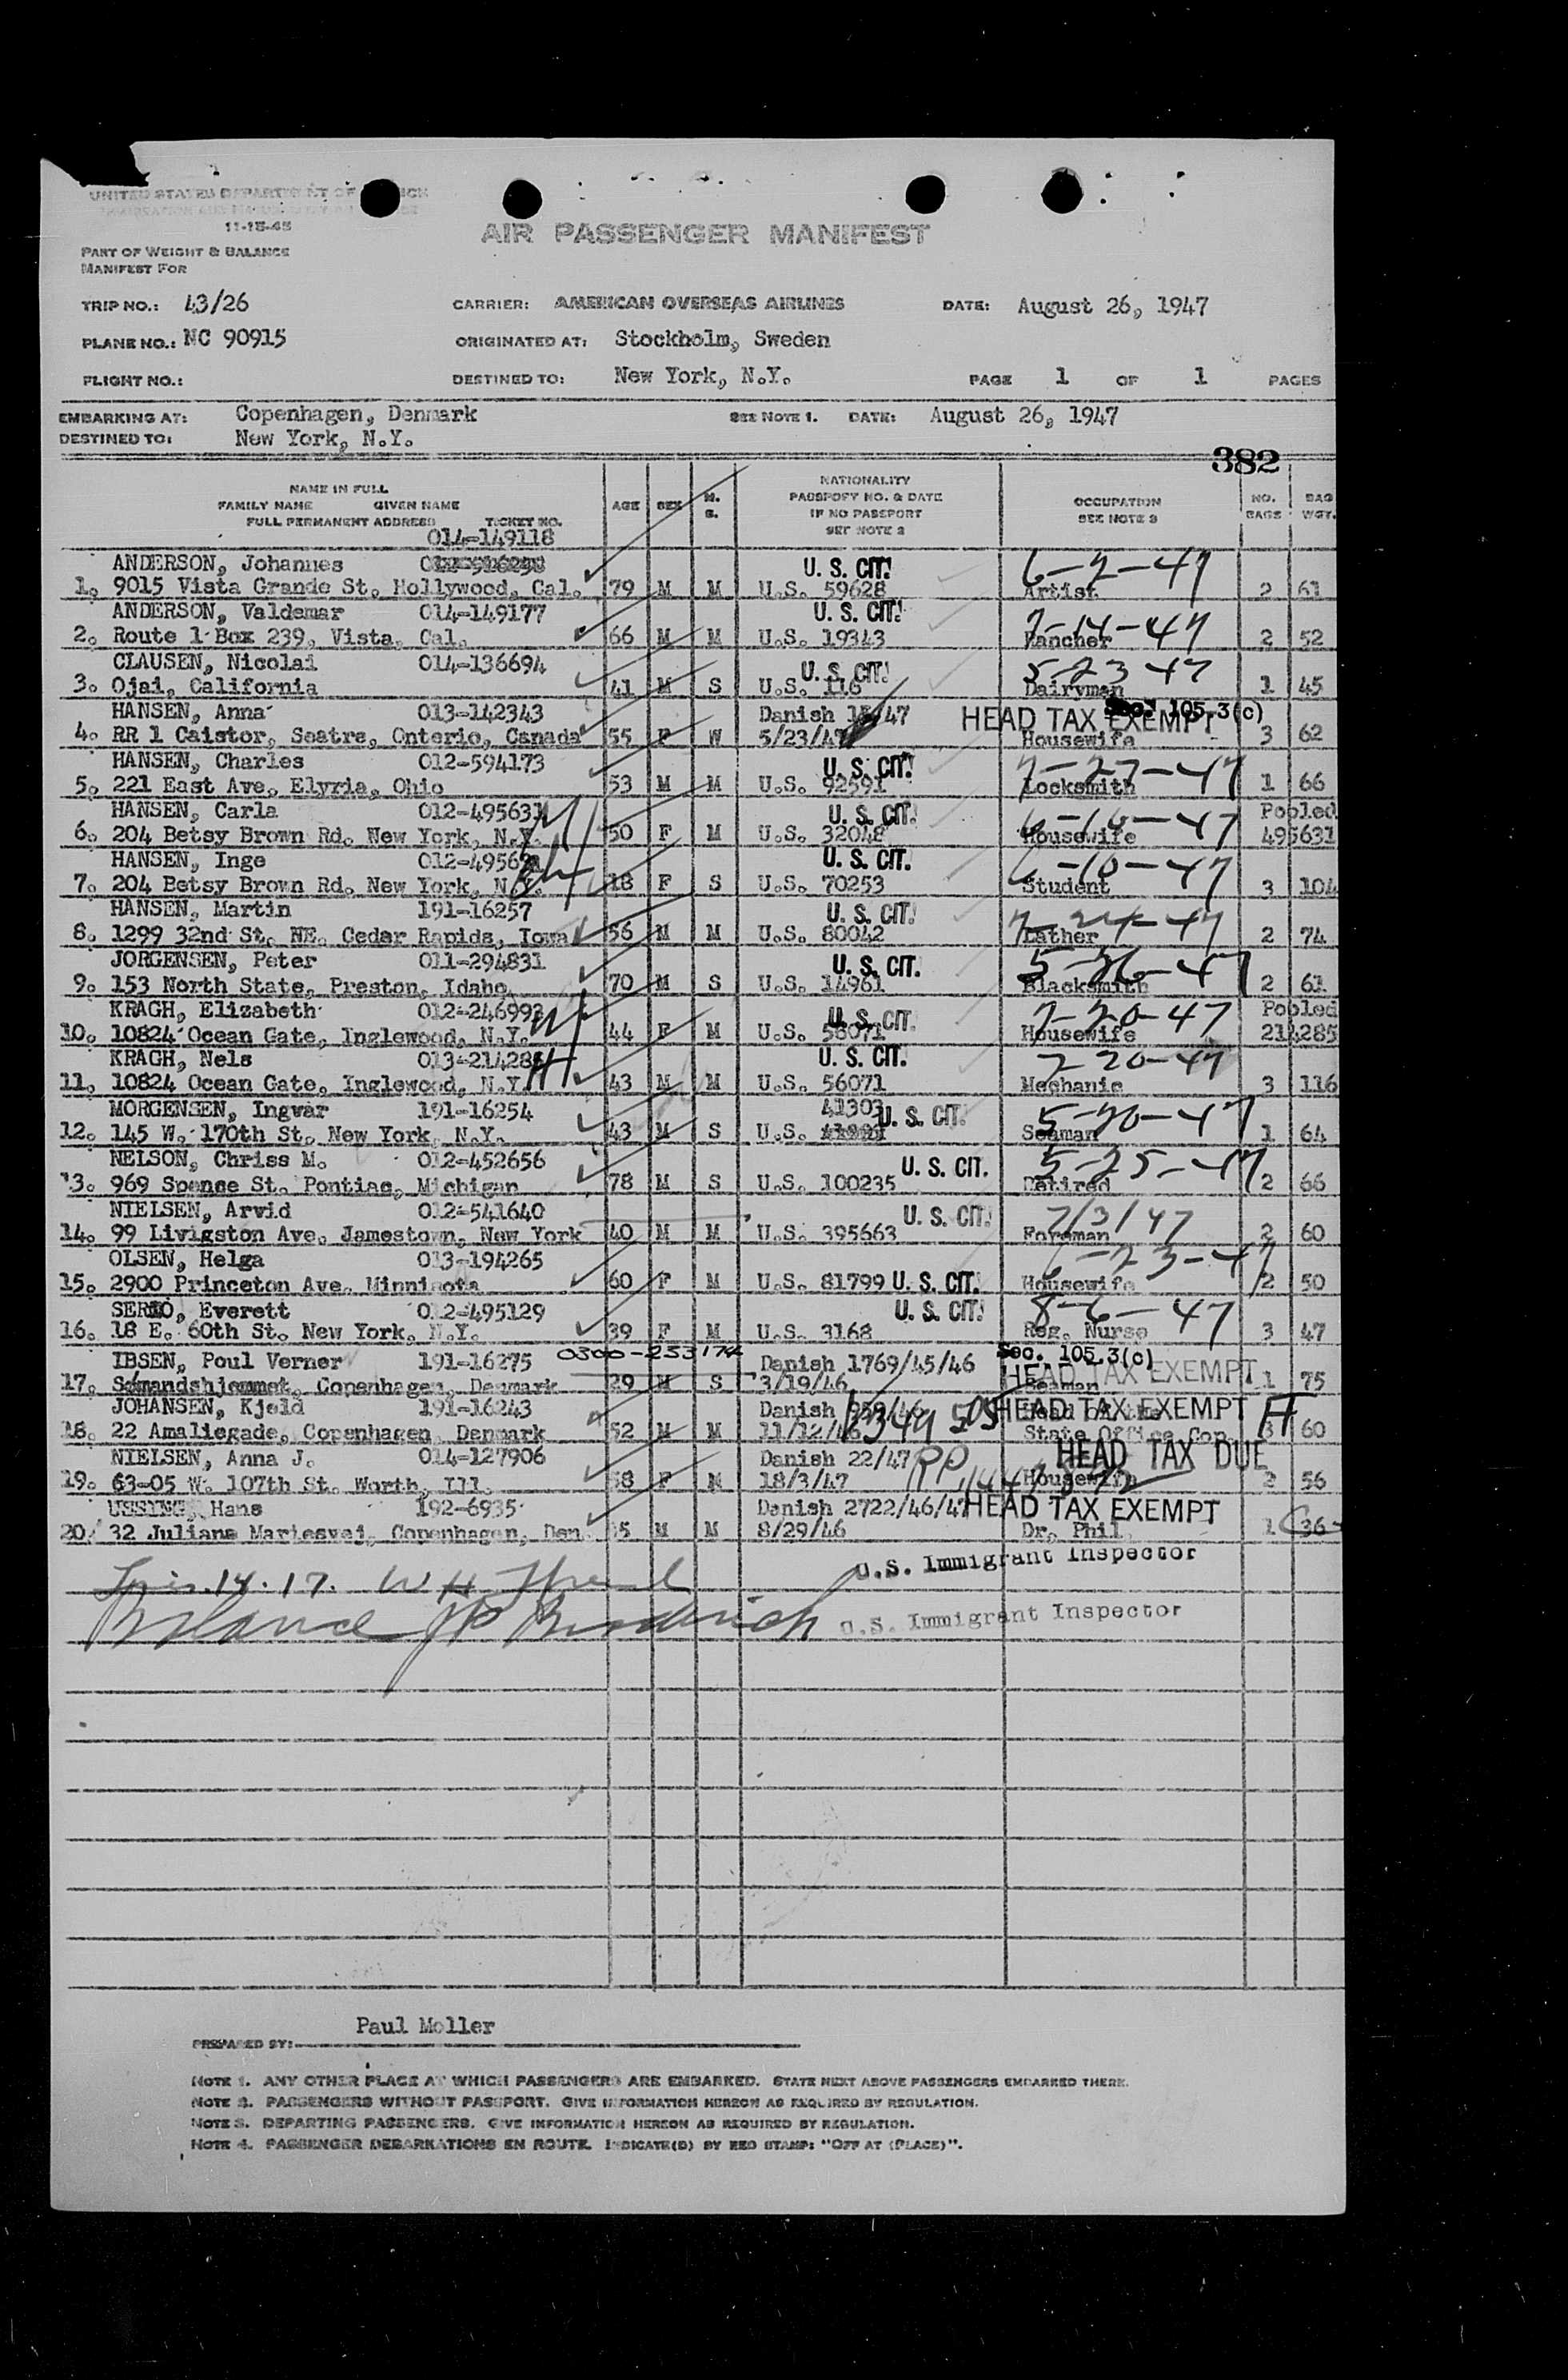 UNITED STATES DEPARTMENT OF
11-15-45
AIR PASSENGER MANIFEST
PART OF WEIGHT & BALANCE
MANIFEST FOR
TRIP NO.: 43/26 CARRIER: AMERICAN OVERSEAS AIRLINES DATE: August 26, 1947
PLANE NO.: NC 90915 ORIGINATED AT: Stockholm, Sweden
FLIGHT NO.: DESTINED TO: New York, N.Y. PAGE 1 OF 1 PAGES
EMBARKING AT: Copenhagen, Denmark SEE NOTE 1. DATE: August 26, 1947
DESTINED TO: New York, N.Y.
382
NAME IN FULL
FAMILY NAME GIVEN NAME
FULL PERMANENT ADDRESS TICKET NO.
AGE SEX M. S.
NATIONALITY
PASSPORT NO. & DATE
IF NO PASSPORT
SEE NOTE 2
OCCUPATION
SEE NOTE 3
NO. BAGS BAG WGT.
014-149118
ANDERSON, Johannes U. S. CIT. 6-2-47
1. 9015 Vista Grande St. Hollywood, Cal. 79 M M U.S. 59628 Artist 2 61
ANDERSON, Valdemar 014-149177 U. S. CIT. 7-14-47
2. Route 1 Box 239, Vista, Cal. 66 M M U.S. 19343 Rancher 2 52
CLAUSEN, Nicolai 014-136694 U. S. CIT. 5-23 47
3. Ojai, California 41 M S U.S. 116 Dairyman 1 45
HANSEN, Anna 013-142343 Danish 47 HEAD TAX EXEMPT Sec. 105.3(c)
4. RR 1 Caistor, Seatre, Onterio, Canada 55 F W 5/23/47 Housewife 3 62
HANSEN, Charles 012-594173 U. S. CIT. 7-27-47
5. 221 East Ave. Elyria, Ohio 53 M M U.S. 92591 Locksmith 1 66
HANSEN, Carla 012-495631 U. S. CIT. 6-10-47 Pooled
6. 204 Betsy Brown Rd. New York, N.Y. 50 F M U.S. 32048 Housewife 495631
HANSEN, Inge U. S. CIT. 6-10-47
7. 204 Betsy Brown Rd. New York, N.Y. 18 F S U.S. 70253 Student 3 104
HANSEN, Martin 191-16257 U. S. CIT. 7-24-47
8. 1299 32nd St. NE. Cedar Rapids, Iowa 56 M M U.S. 80042 Lather 2 74
JORGENSEN, Peter 011-294831 U. S. CIT. 5-26-47
9. 153 North State, Preston, Idaho 70 M S U.S. 14961 Blacksmith 2 61
KRAGH, Elizabeth 012-246993 U. S. CIT. 7-20-47 Pooled
10. 10824 Ocean Gate, Inglewood, N.Y. 44 F M U.S. 56071 Housewife 214285
KRAGH, Nels 013-214285 U. S. CIT. 7 20-47
11. 10824 Ocean Gate, Inglewood, N.Y. 43 M M U.S. 56071 Mechanic 3 116
MORGENSEN, Ingvar 191-16254 41303 U. S. CIT. 5-20-47
12. 145 W. 170th St. New York, N.Y. 43 M S U.S. Seaman 1 64
NELSON, Chriss M. 012-452656 U. S. CIT. 5-25-47
13. 969 Spense St. Pontiac, Michigan 78 M S U.S. 100235 Retired 2 66
NIELSEN, Arvid 012-541640 U. S. CIT. 7/3/47
14. 99 Livigston Ave. Jamestown, New York 40 M M U.S. 395663 Foreman 2 60
OLSEN, Helga 013-194265 6-23-47
15. 2900 Princeton Ave. Minnisota 60 F M U.S. 81799 U. S. CIT. Housewife 2 50
Everett 012-495129 U. S. CIT. 8-6-47
16. 18 E. 60th St. New York, N.Y. 39 F M U.S. 3168 Reg. Nurse 3 47
IBSEN, Poul Verner 191-16275 0300-253174 Danish 1769/45/46 Sec. 105.3(c) HEAD TAX EXEMPT
17. Sømandshjemmet, Copenhagen, Denmark 29 M S 3/19/46 Seaman 1 75
JOHANSEN, Kjeld 191-16243 Danish HEAD TAX EXEMPT
18. 22 Amaliegade, Copenhagen, Denmark 52 M M 11/12/46 State Office Cop. 3 60
NIELSEN, Anna J. 014-127906 Danish 22/47 HEAD TAX DUE
19. 63-05 W. 107th St. Worth, Ill. 58 F M 18/3/47 Housewife 2 56
USSING, Hans 192-6935 Danish 2722/46/47 HEAD TAX EXEMPT
20. 32 Juliane Mariesvej, Copenhagen, Den. 55 M M 8/29/46 Dr. Phil. 1 36
14. 17. W H U.S. Immigrant Inspector
Balance U.S. Immigrant Inspector
Paul Moller
PREPARED BY:
NOTE 1. ANY OTHER PLACE AT WHICH PASSENGERS ARE EMBARKED. STATE NEXT ABOVE PASSENGERS EMBARKED THERE.
NOTE 2. PASSENGERS WITHOUT PASSPORT. GIVE INFORMATION HEREON AS REQUIRED BY REGULATION.
NOTE 3. DEPARTING PASSENGERS. GIVE INFORMATION HEREON AS REQUIRED BY REGULATION.
NOTE 4. PASSENGER DEBARKATIONS EN ROUTE. INDICATE(D) BY RED STAMP: "OFF AT (PLACE)".